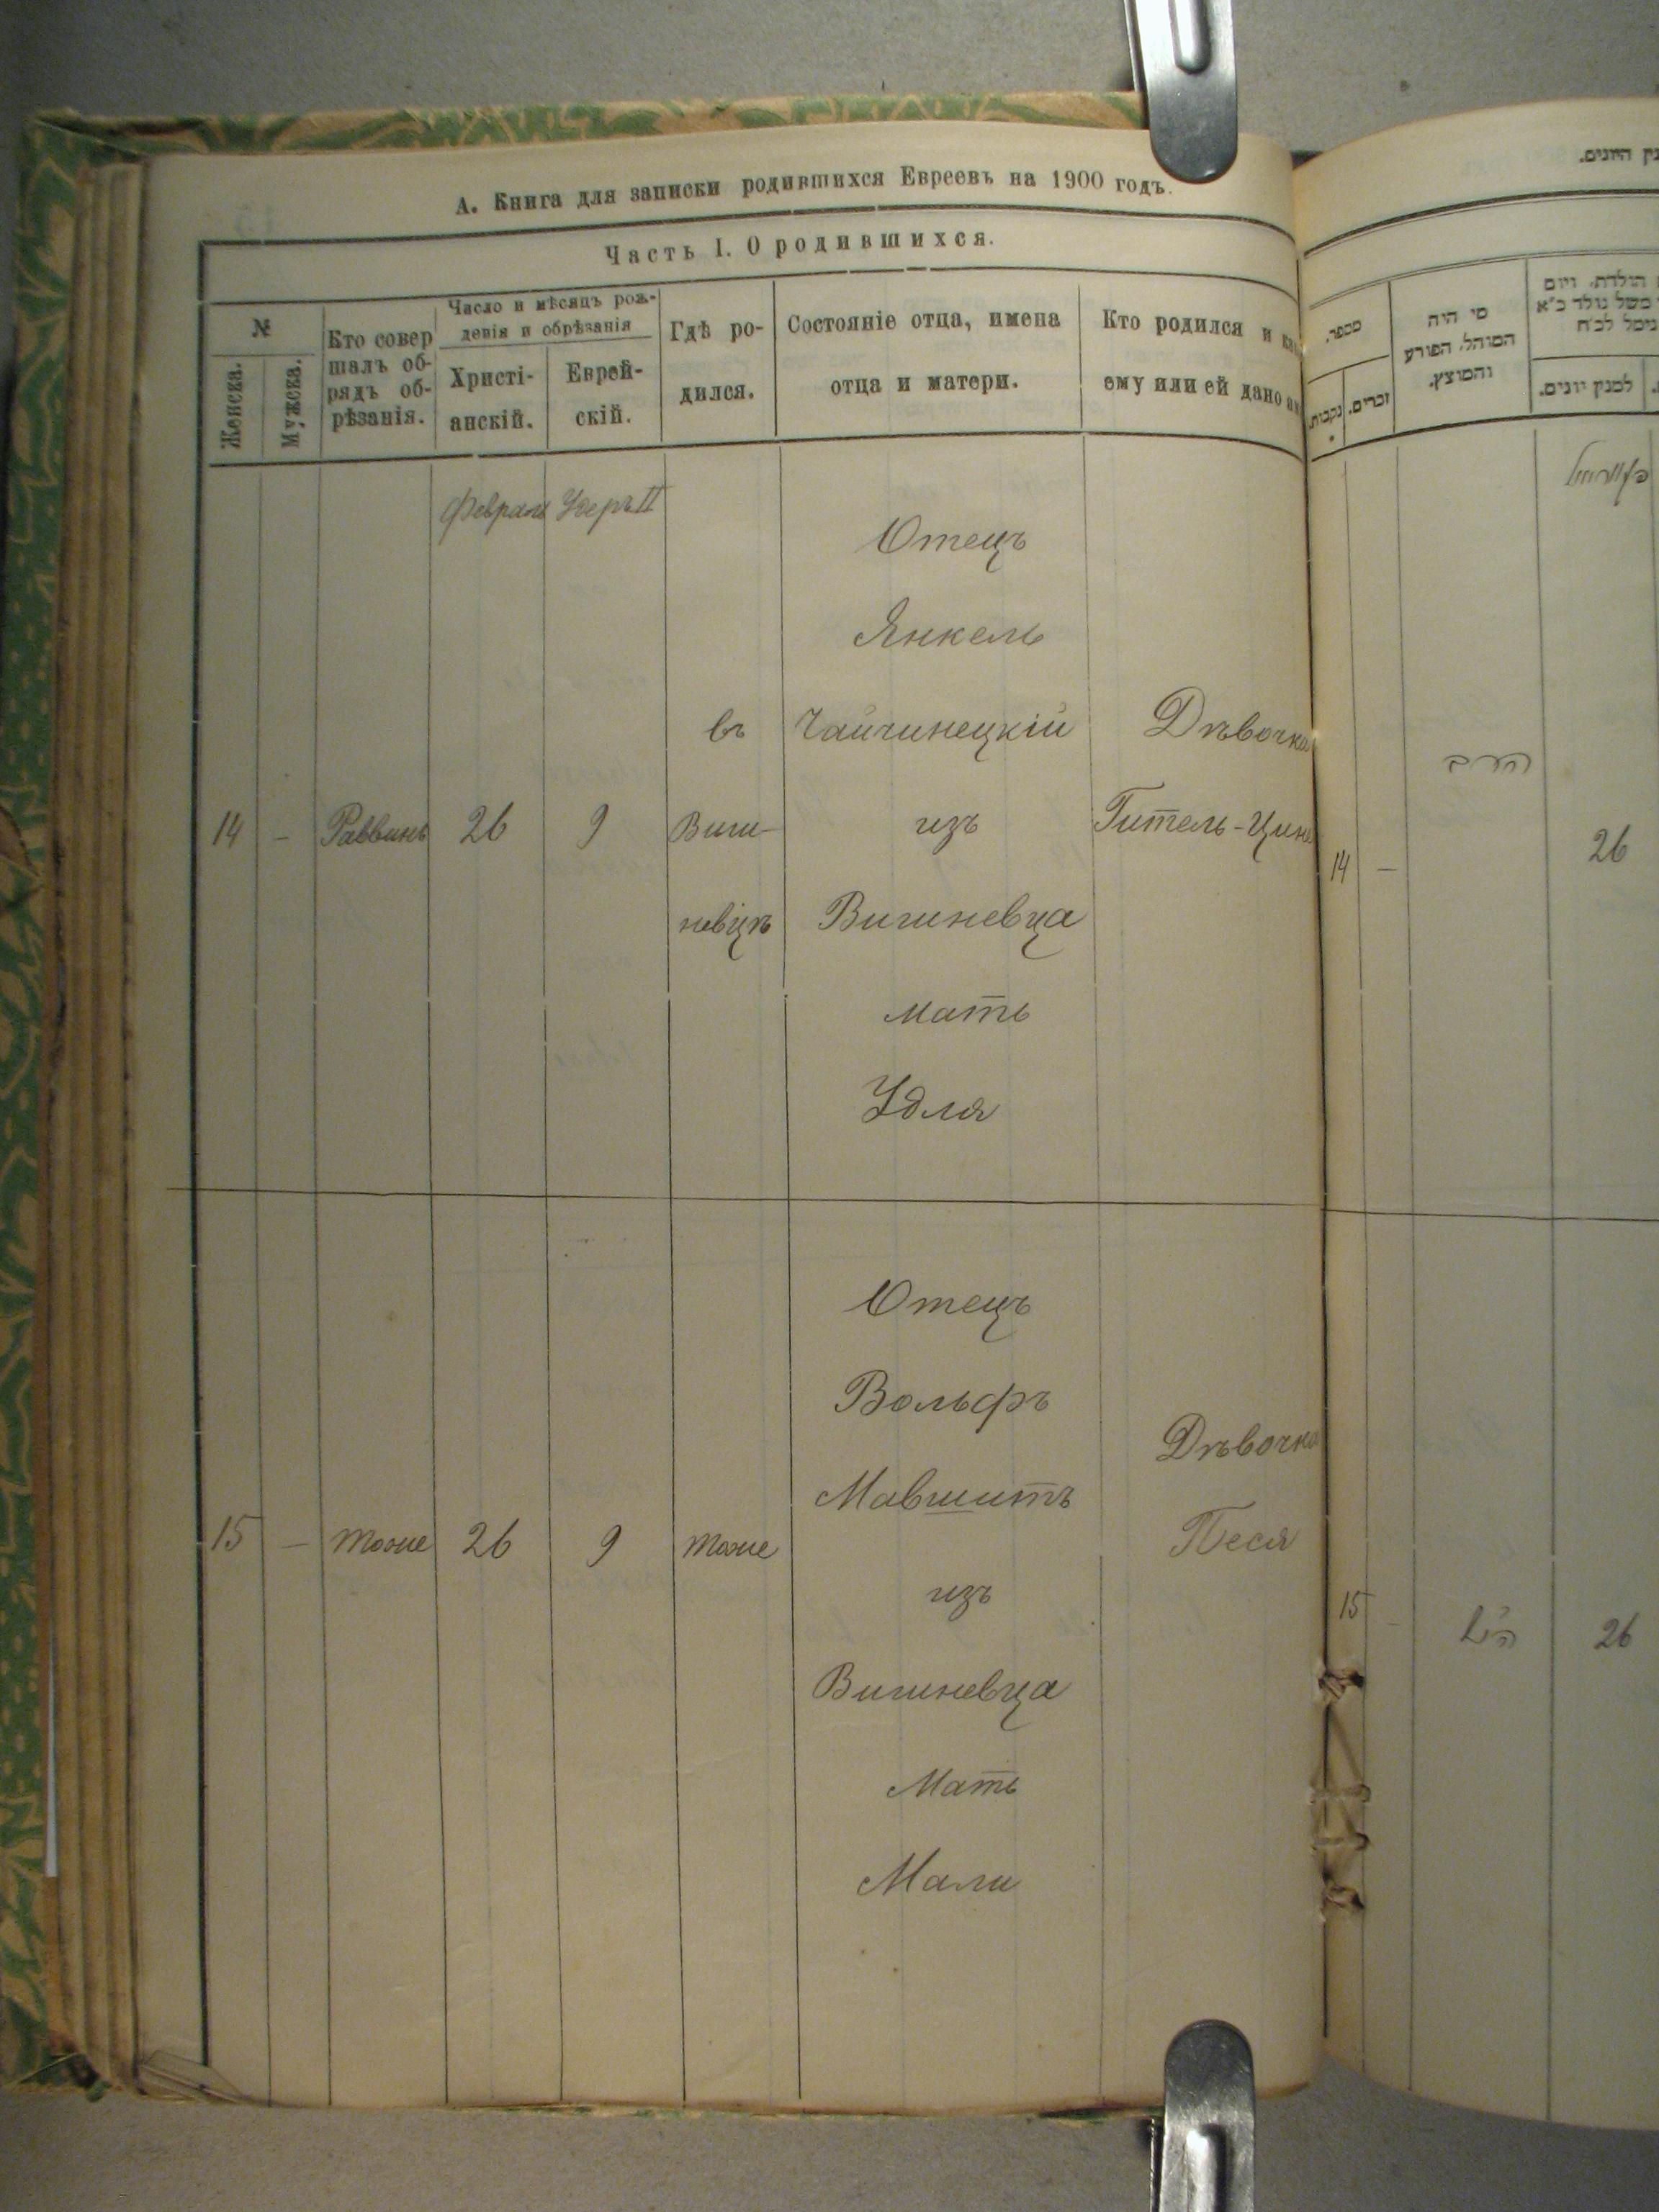 А. Книга для записки родившихся Евреевъ на 1900 годъ.
Часть I. О родившихся.
№
Женска.
Мужска.
Кто совер
шалъ об-
рядъ об-
рѣзанія.
Число и мѣсяцъ рож-
денія и обрѣзанія
Христі-
анскій.
Еврей-
скій.
Гдѣ ро-
дился.
Состояніе отца, имена
отца и матери.
Кто родился и
ему или ей дано
Февраль Адеръ II
14 - Раввинъ 26 9
въ
Виш-
невцѣ
Отецъ
Янкель
Чайчинецкій
изъ
Вишневца
мать
Удля
Дѣвочка
Гитель-Ципа
15 - тоже 26 9 тоже
Отецъ
Вольфъ
Мавшитъ
изъ
Вишневца
Мать
Мали
Дѣвочка
Песя
היונים.
מספר.
נקבות.
זכרים.
מי היה
המוהל, הפורע
והמוצץ.
הולדת, ויום
למנין יונים.
14 - הרב 26
15 - הנ״ל 26